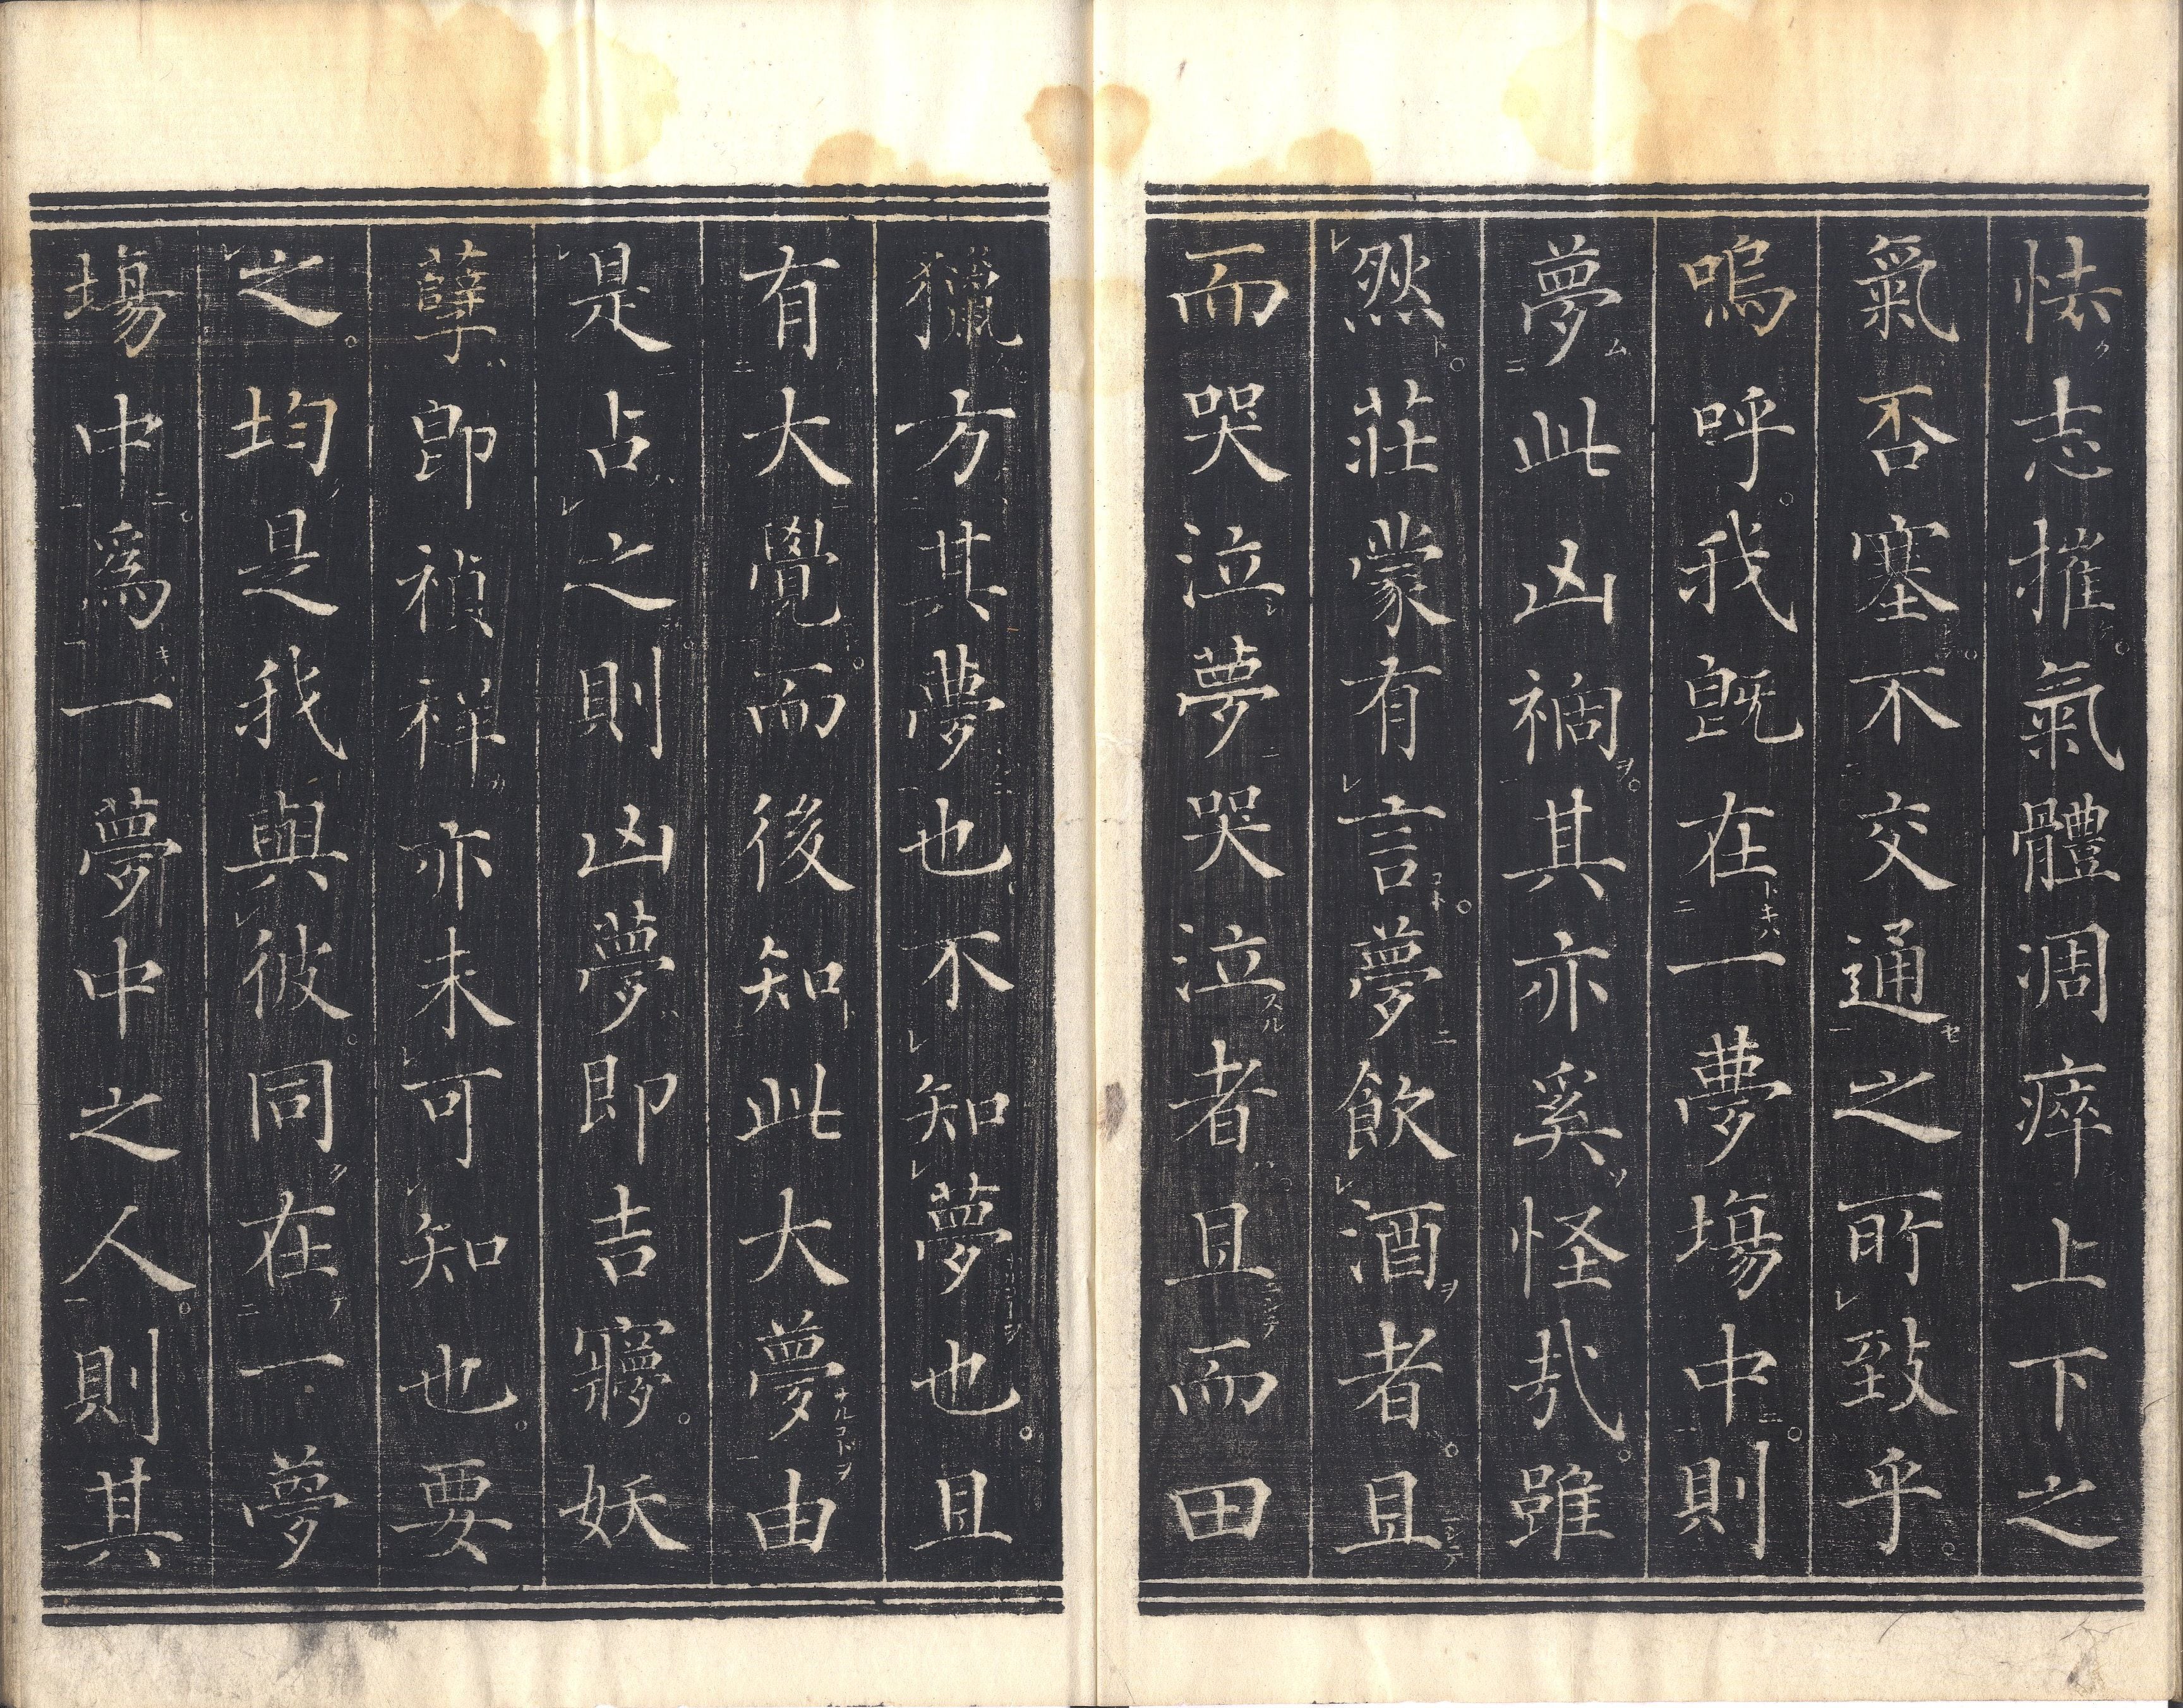 怯志摧氣體凋瘁上下之
氣否塞不交通之所致乎
嗚呼我既在一夢場中則
夢此凶禍其亦奚怪哉雖
然莊蒙有言夢飲酒者且
而哭泣夢哭泣者且而田
獵方其夢也不知夢也且
有大覺而後知此大夢由
是占之則凶夢即吉寱妖
孽即禎祥亦未可知也要
之均是我與彼同在一夢
場中為一夢中之人則其